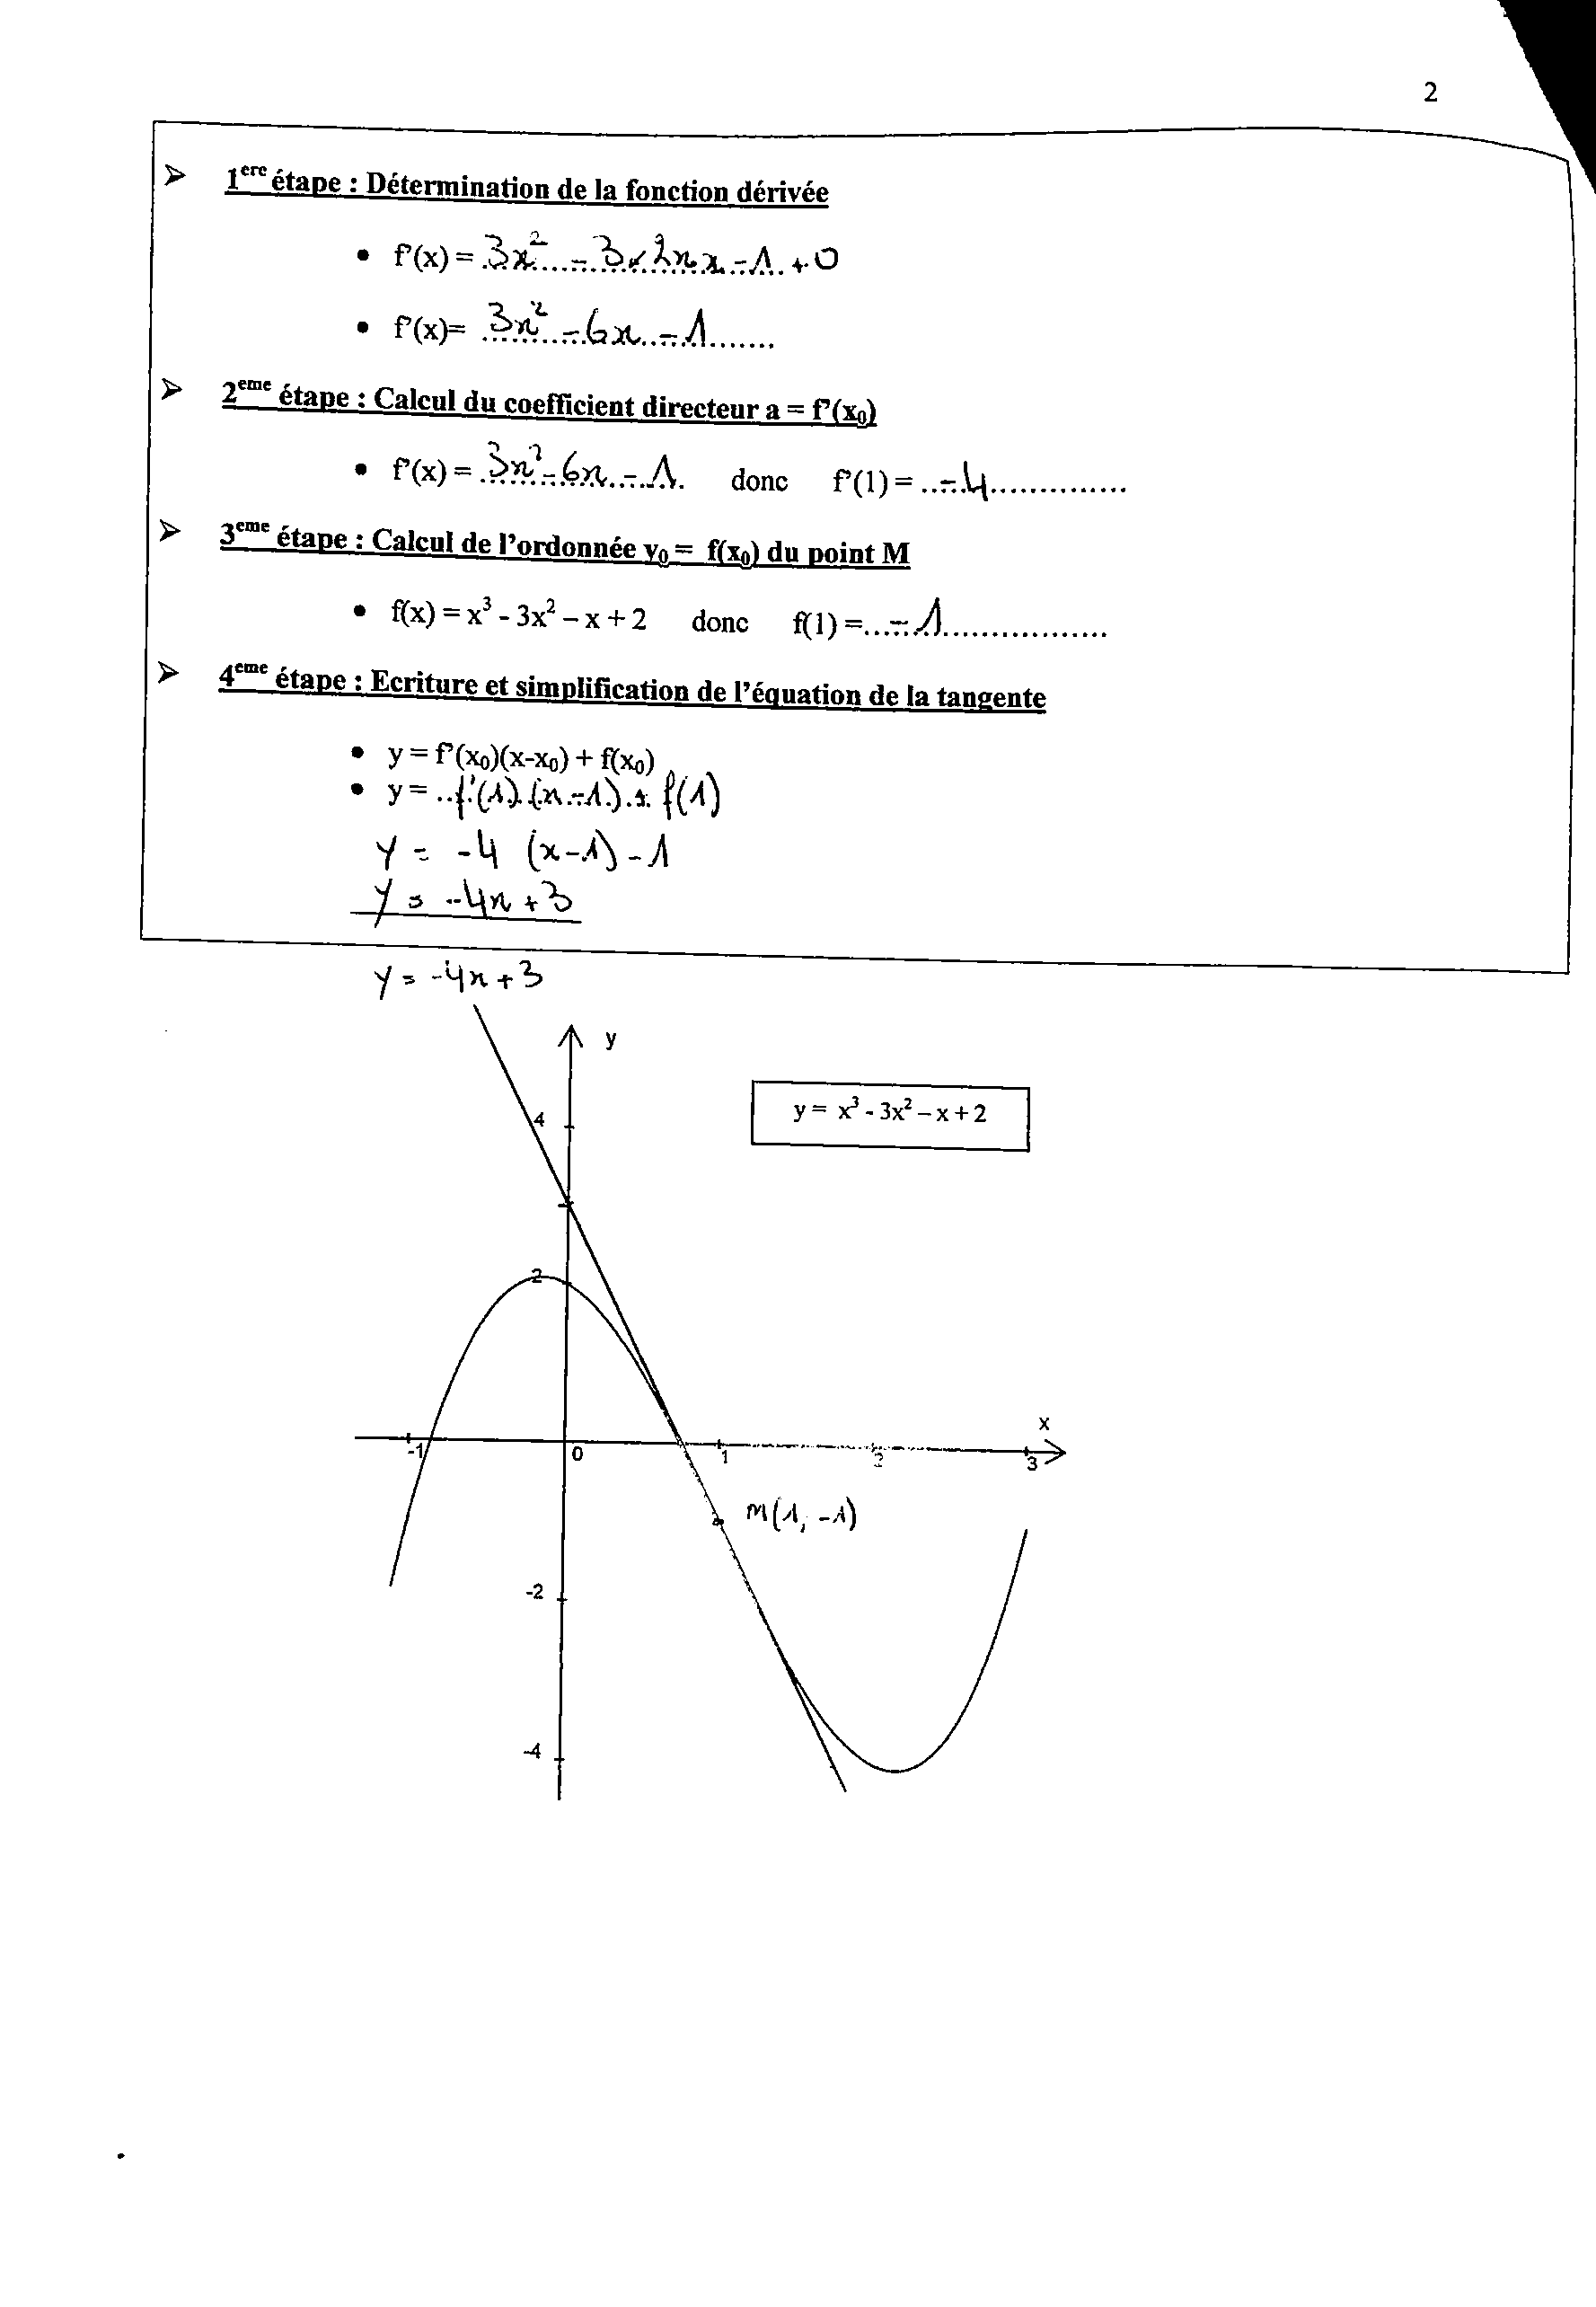 2
➢ 1ere étape : Détermination de la fonction dérivée
• f'(x) = 3x² - 3×2×x - 1 + 0
• f'(x)= 3x² - 6x - 1
➢ 2eme étape : Calcul du coefficient directeur a = f'(x₀)
• f'(x) = 3x² - 6x - 1 donc f'(1) = - 4
➢ 3eme étape : Calcul de l'ordonnée y₀ = f(x₀) du point M
• f(x) = x³ - 3x² – x + 2 donc f(1) = - 1
➢ 4eme étape : Ecriture et simplification de l'équation de la tangente
• y = f'(x₀)(x-x₀) + f(x₀)
• y = f'(1) (x - 1) + f(1)
y = -4 (x-1) - 1
y = -4x + 3
y = -4x + 3
y
y = x³ - 3x² – x + 2
4
2
x
-1 0 1 2 3
M(1, -1)
-2
-4